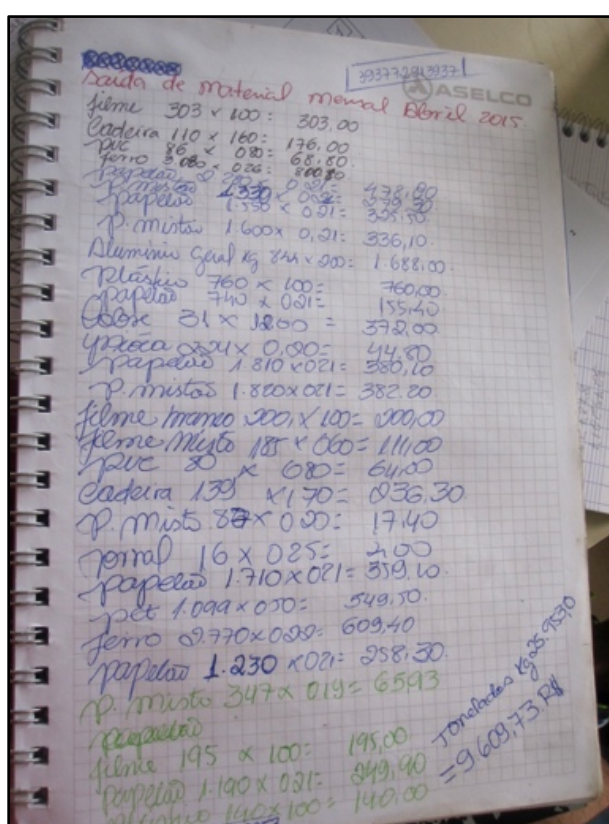 393772913937
ASELCO
Saida de material mensal Abril 2015.
filme 303 x 100 = 303,00
Cadeira 110 x 160 = 176,00
pvc 86 x 080 = 68,80
ferro 3.080 x 026 =
papelão 0,21 = 478,80
P. misto
papelão 1.550 x 021 = 325,50
P. mistos 1.600 x 0,21 = 336,10
Aluminio Geral kg 844 x 200 = 1.688,00
Plástico 760 x 100 = 760,00
papelão 740 x 021 = 155,40
Cobre 31 x 1200 = 372,00
224 x 0,20 = 44,80
papelão 1.810 x 021 = 380,10
P. mistos 1.820 x 021 = 382.20
filme branco 200, x 100 = 200,00
filme Misto 185 x 060 = 111,00
pvc 80 x 080 = 64,00
Cadeira 139 x 170 = 236.30
P. Misto 87 x 020 = 17,40
jornal 16 x 025 = 4.00
papelão 1.710 x 021 = 359,10
pet 1.099 x 050 = 549,50
ferro 2.770 x 022 = 609,40
papelão 1.230 x 021 = 258,30
P. Misto 347 x 019 = 65,93
papelão
filme 195 x 100 = 195,00
papelão 1.190 x 021 = 249,90
140 x 100 = 140,00
Toneladas kg 25.953,0
= 9.609,73 R$